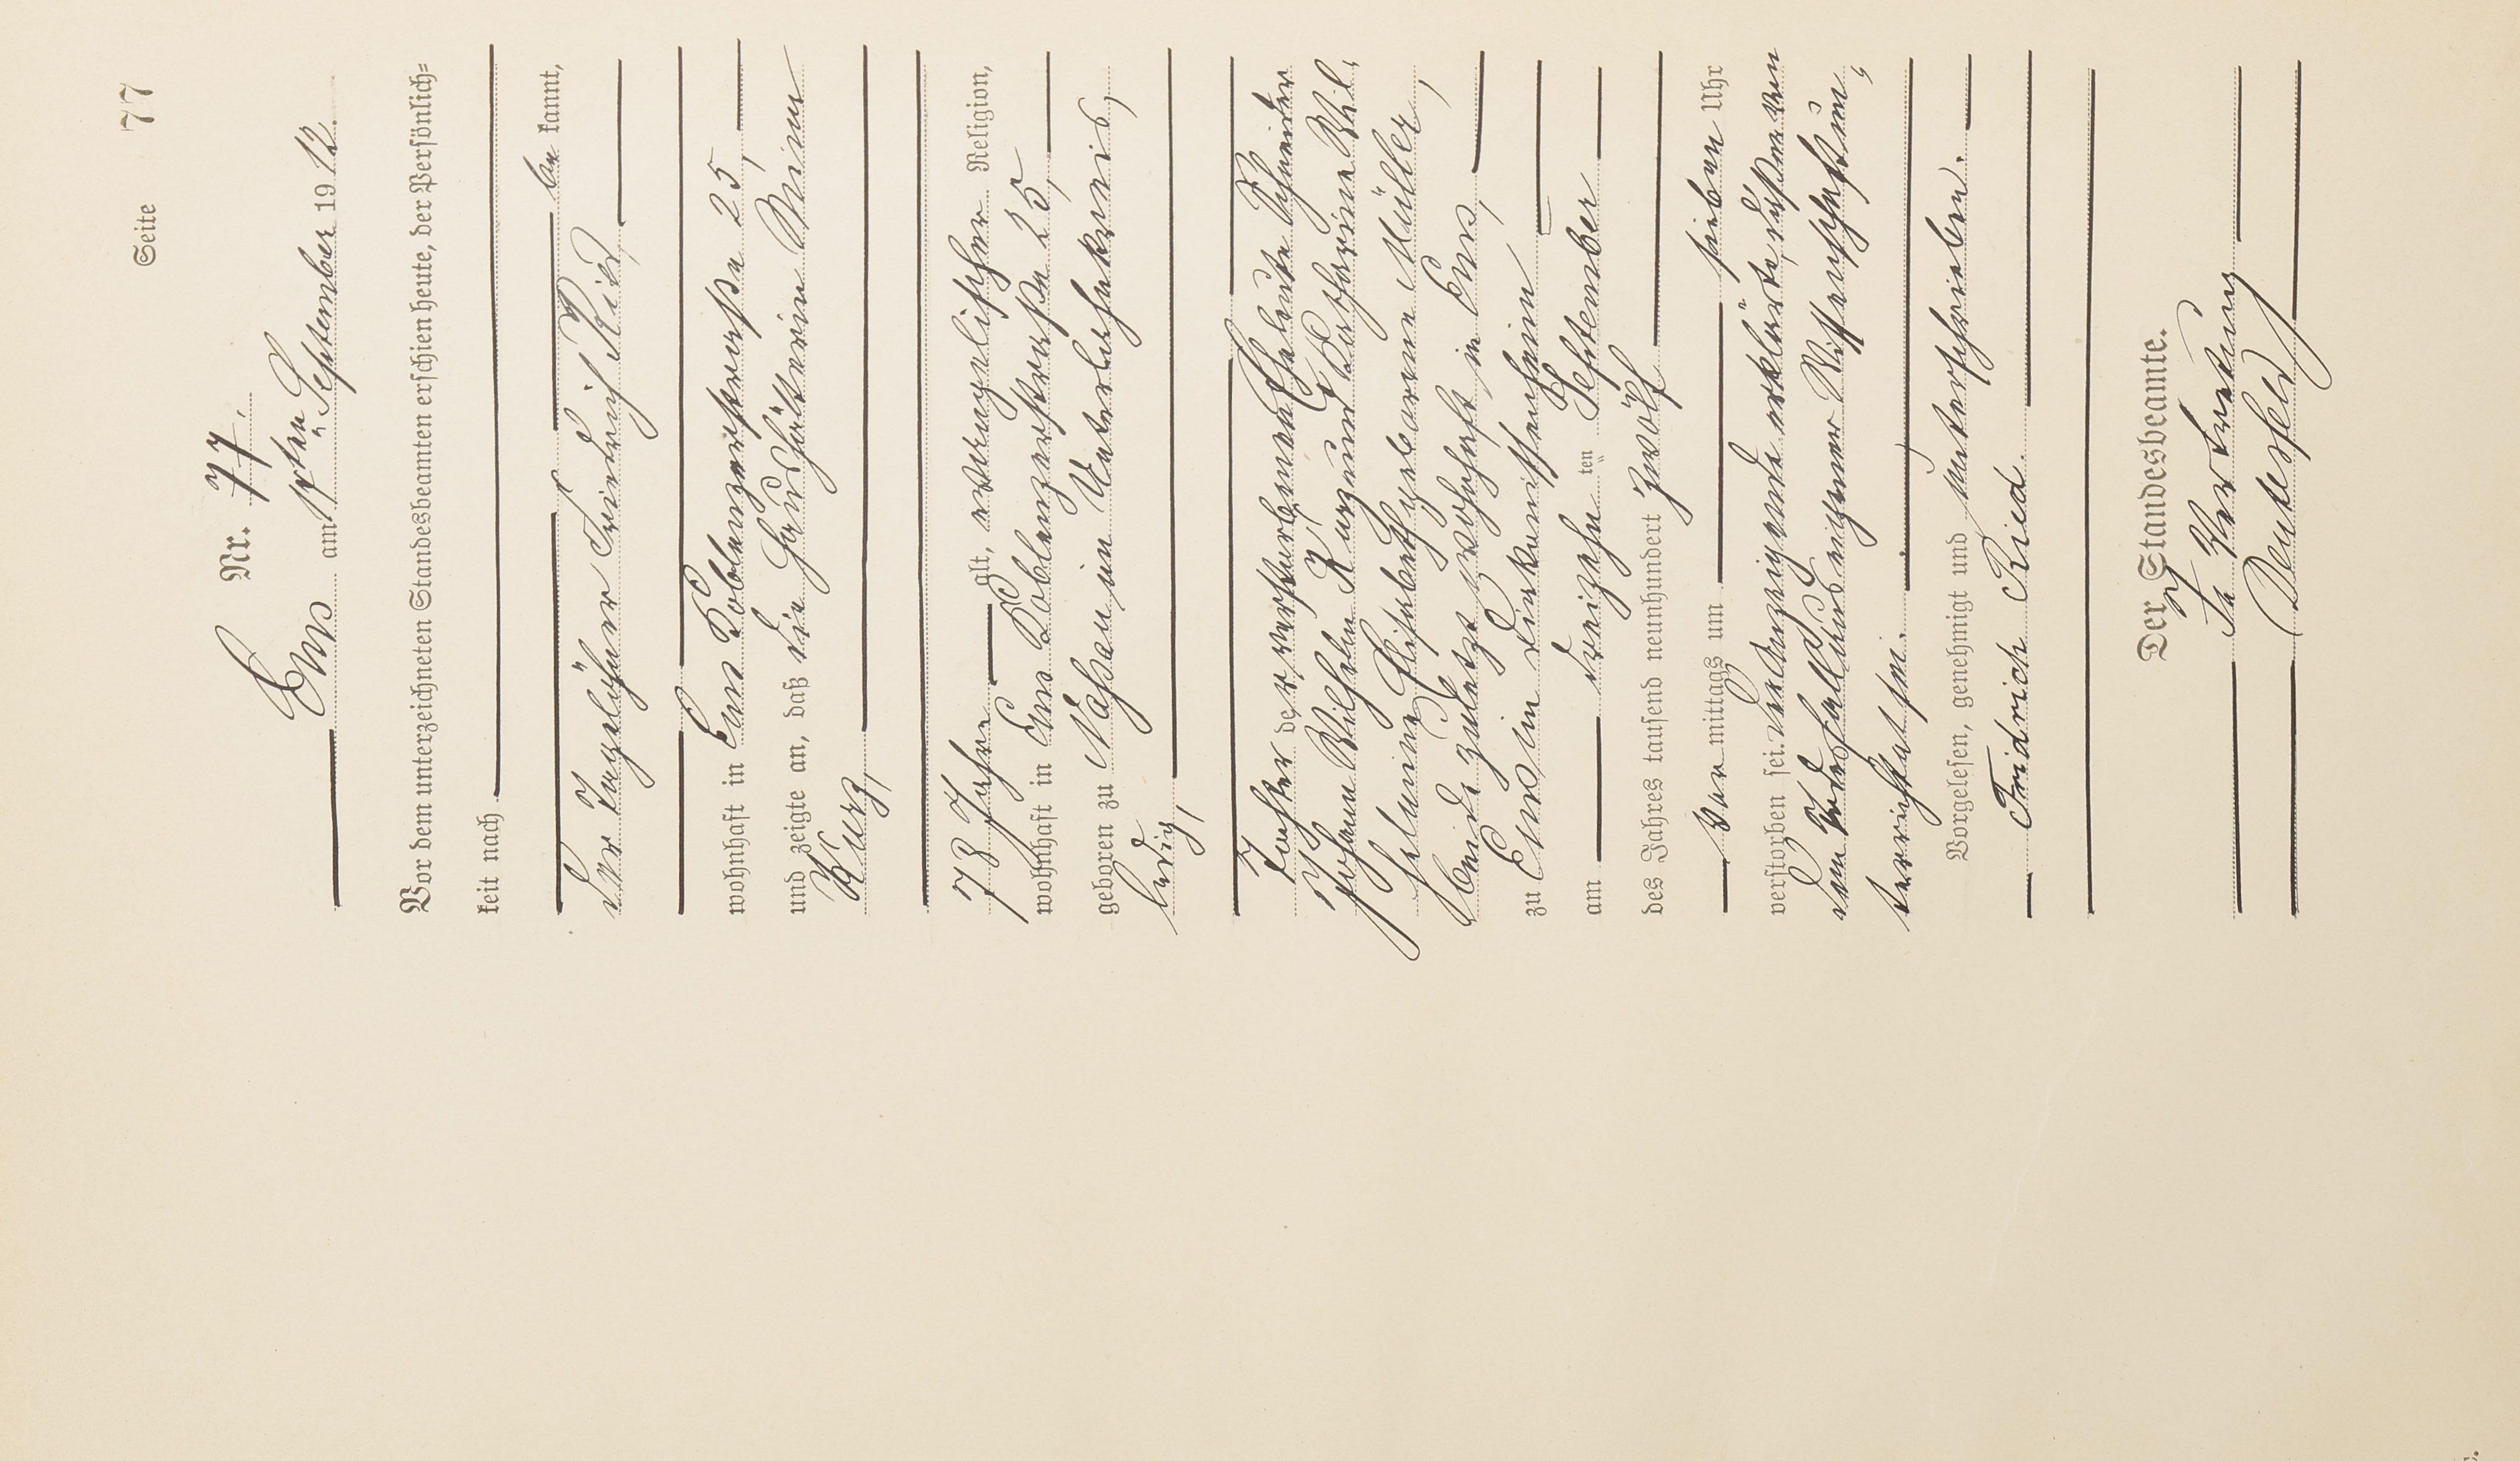 Seite 77
Nr. 77.
Ems am 14ten September 1912.
Vor dem unterzeichneten Standesbeamten erschien heute, der Persönlich=
keit nach
be kannt,
der Tagelöhner Friedrich Ried,
wohnhaft in Ems Koblenzerstrasse 25,
und zeigte an, daß die Haushälterin Minna
Kurz,
78 Jahre alt, evangelischer Religion,
wohnhaft in Ems Koblenzerstraße 25,
geboren zu Naßau im Unterlahnkreis,
ledig,
Tochter der verstorbenen Eheleute Schneider
Johann Wilhelm Kurz und Katharine Wil-
helmine Elisabeth geborene Müller,
beide zuletzt wohnhaft in Ems,
zu Ems im Diakonissenheim
am dreizehn ten September
des Jahres tausend neunhundert zwölf
Vor mittags um sieben Uhr
verstorben sei. Der Anzeigende erklärte, daß er von
dem Todesfall aus eigener Wissenschaft un-
terrichtet sei.
Vorgelesen, genehmigt und unterschrieben.
Friedrich Ried.
Der Standesbeamte.
In Vertretung